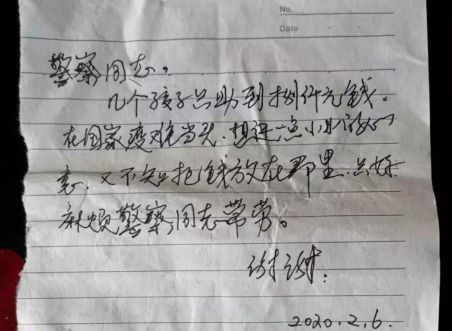 No.
Date
警察同志。
几个孩子只助到捌仟元钱。
在国家危难当头，想进一点小小的心
意，又不知把钱放在那里，只好
麻烦警察同志帮劳。
谢谢！
2020.2.6.